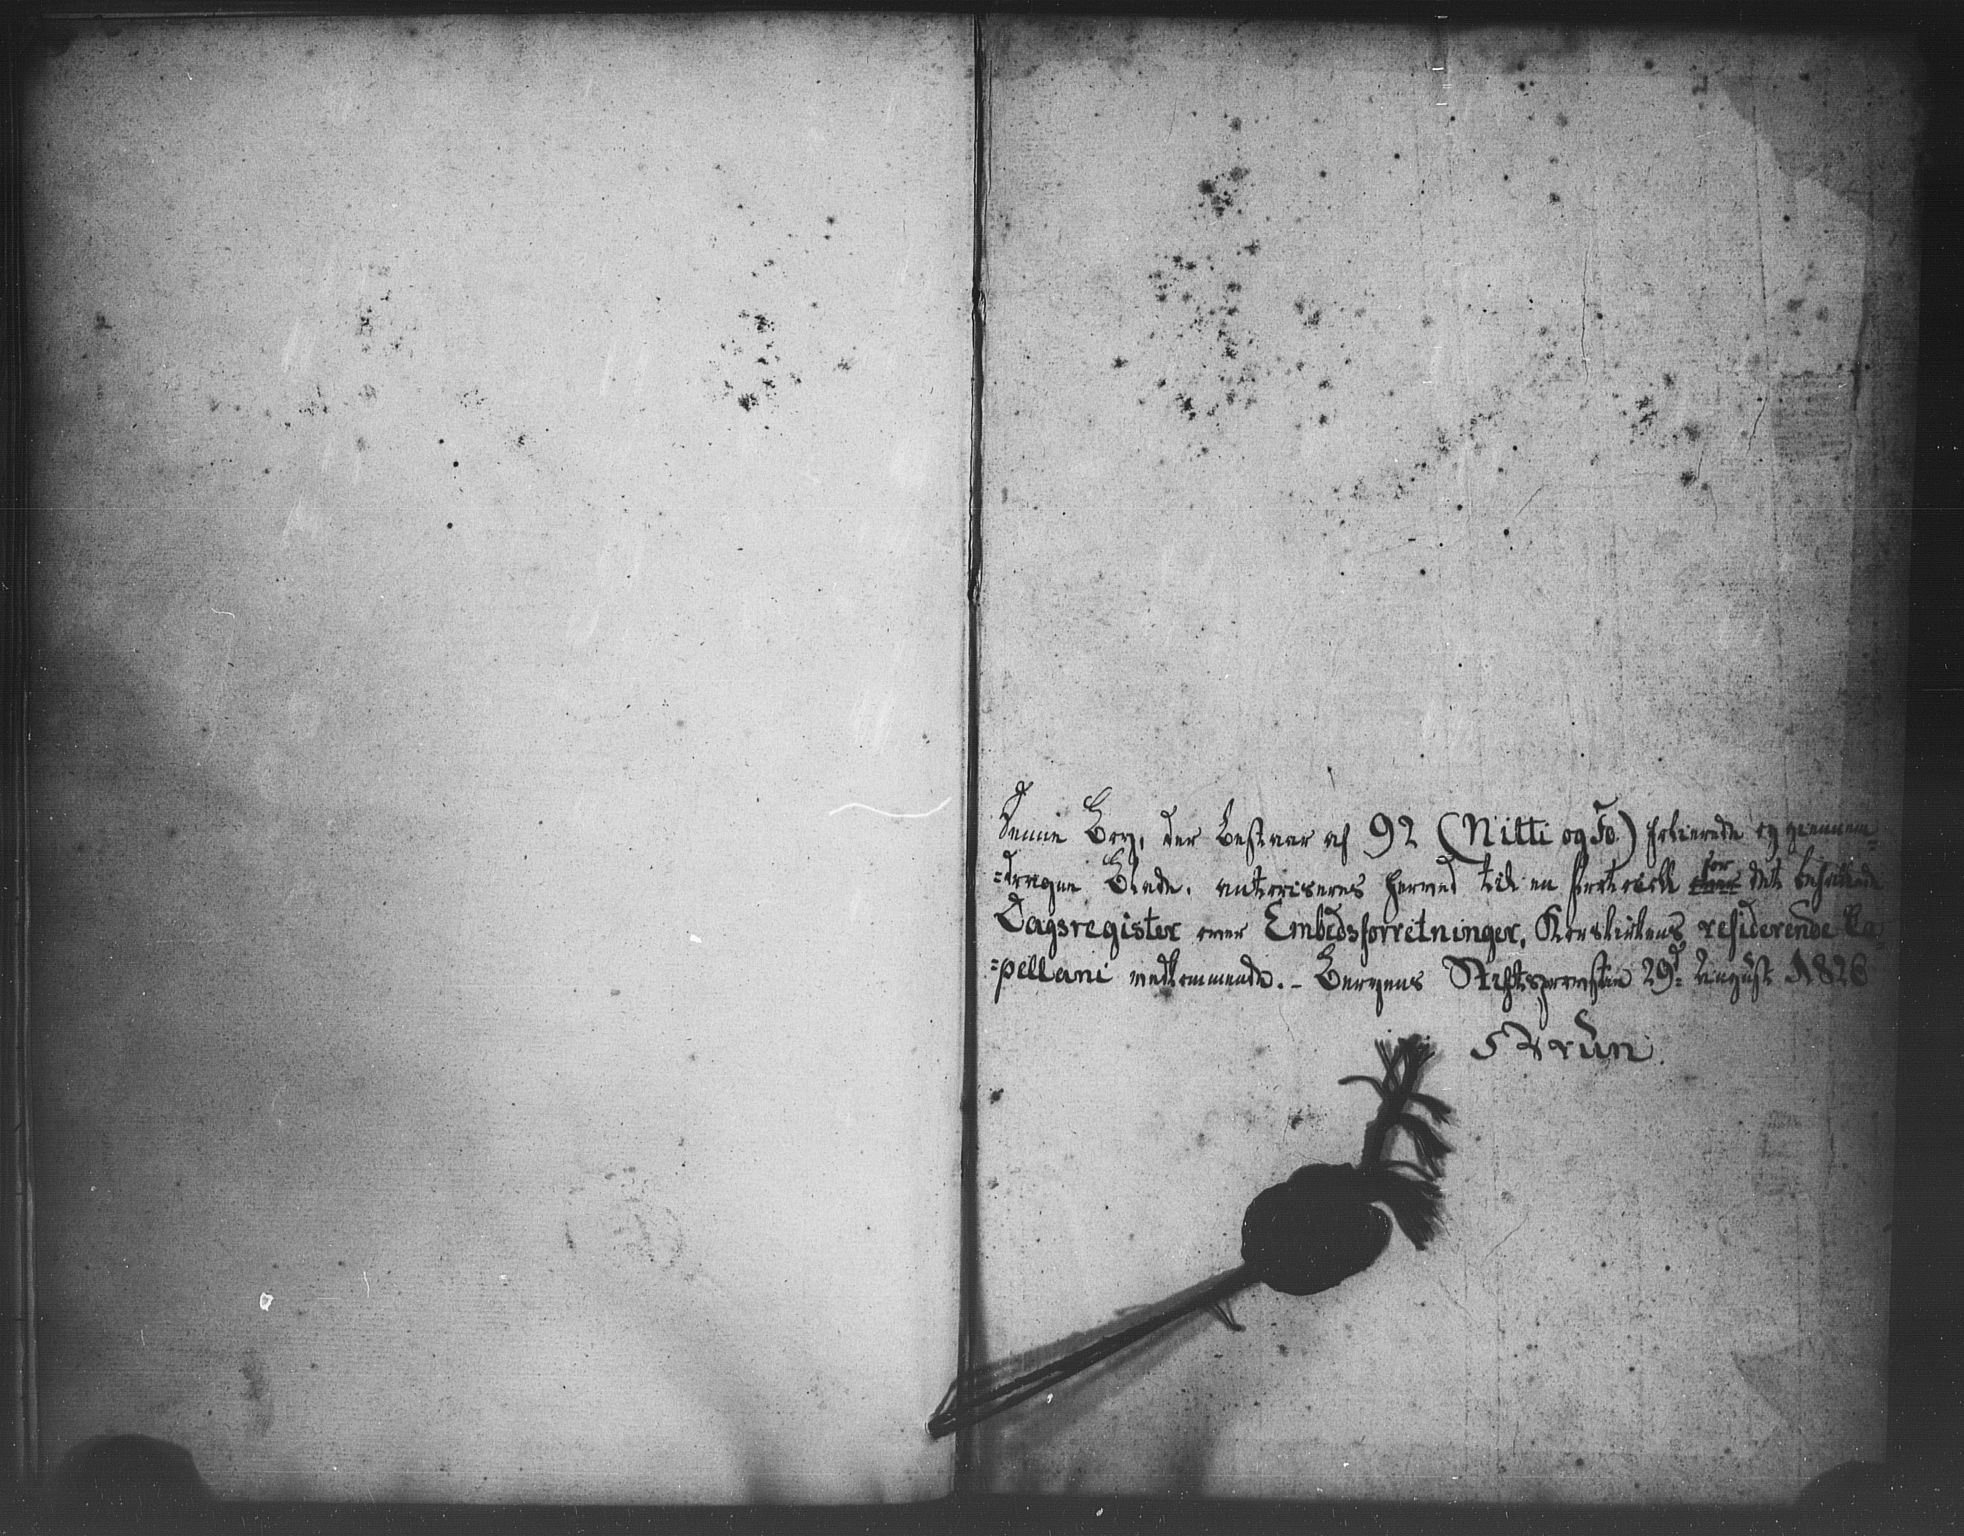 Denne Bog, der bestaaer af 92 (Nitti og To) folierede og giennem-
=dragne Blade, autoriseres herved til en for det befalede
Dagsregister over Embedsforretninger, Korskirkens residerende Ca=
=pellani vedkommende. - Bergens Stiftsprovstie 29d: August 1826
Bruun.